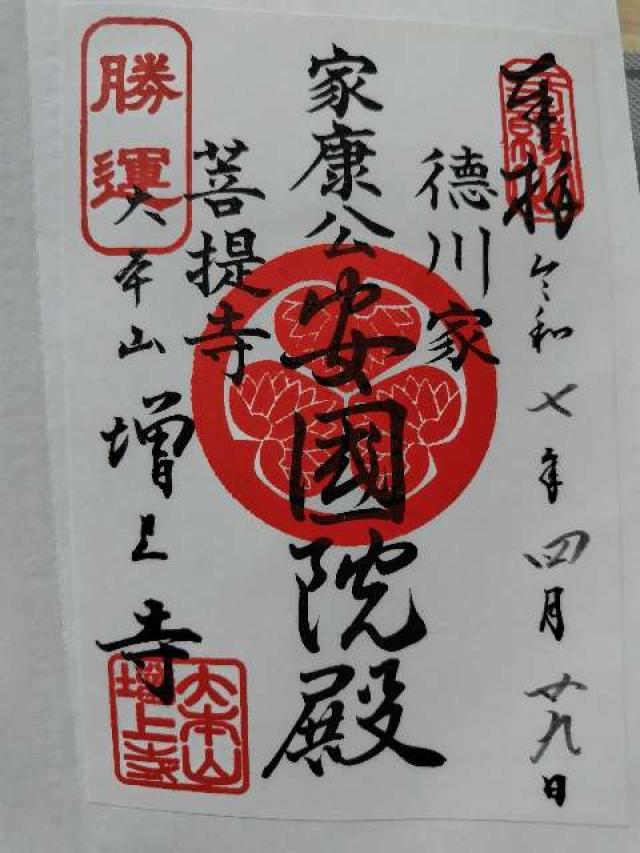 奉拝
令和七年四月廿九日
德川家
家康公安國院殿
菩提寺
勝運
大本山増上寺
大本山
増上寺